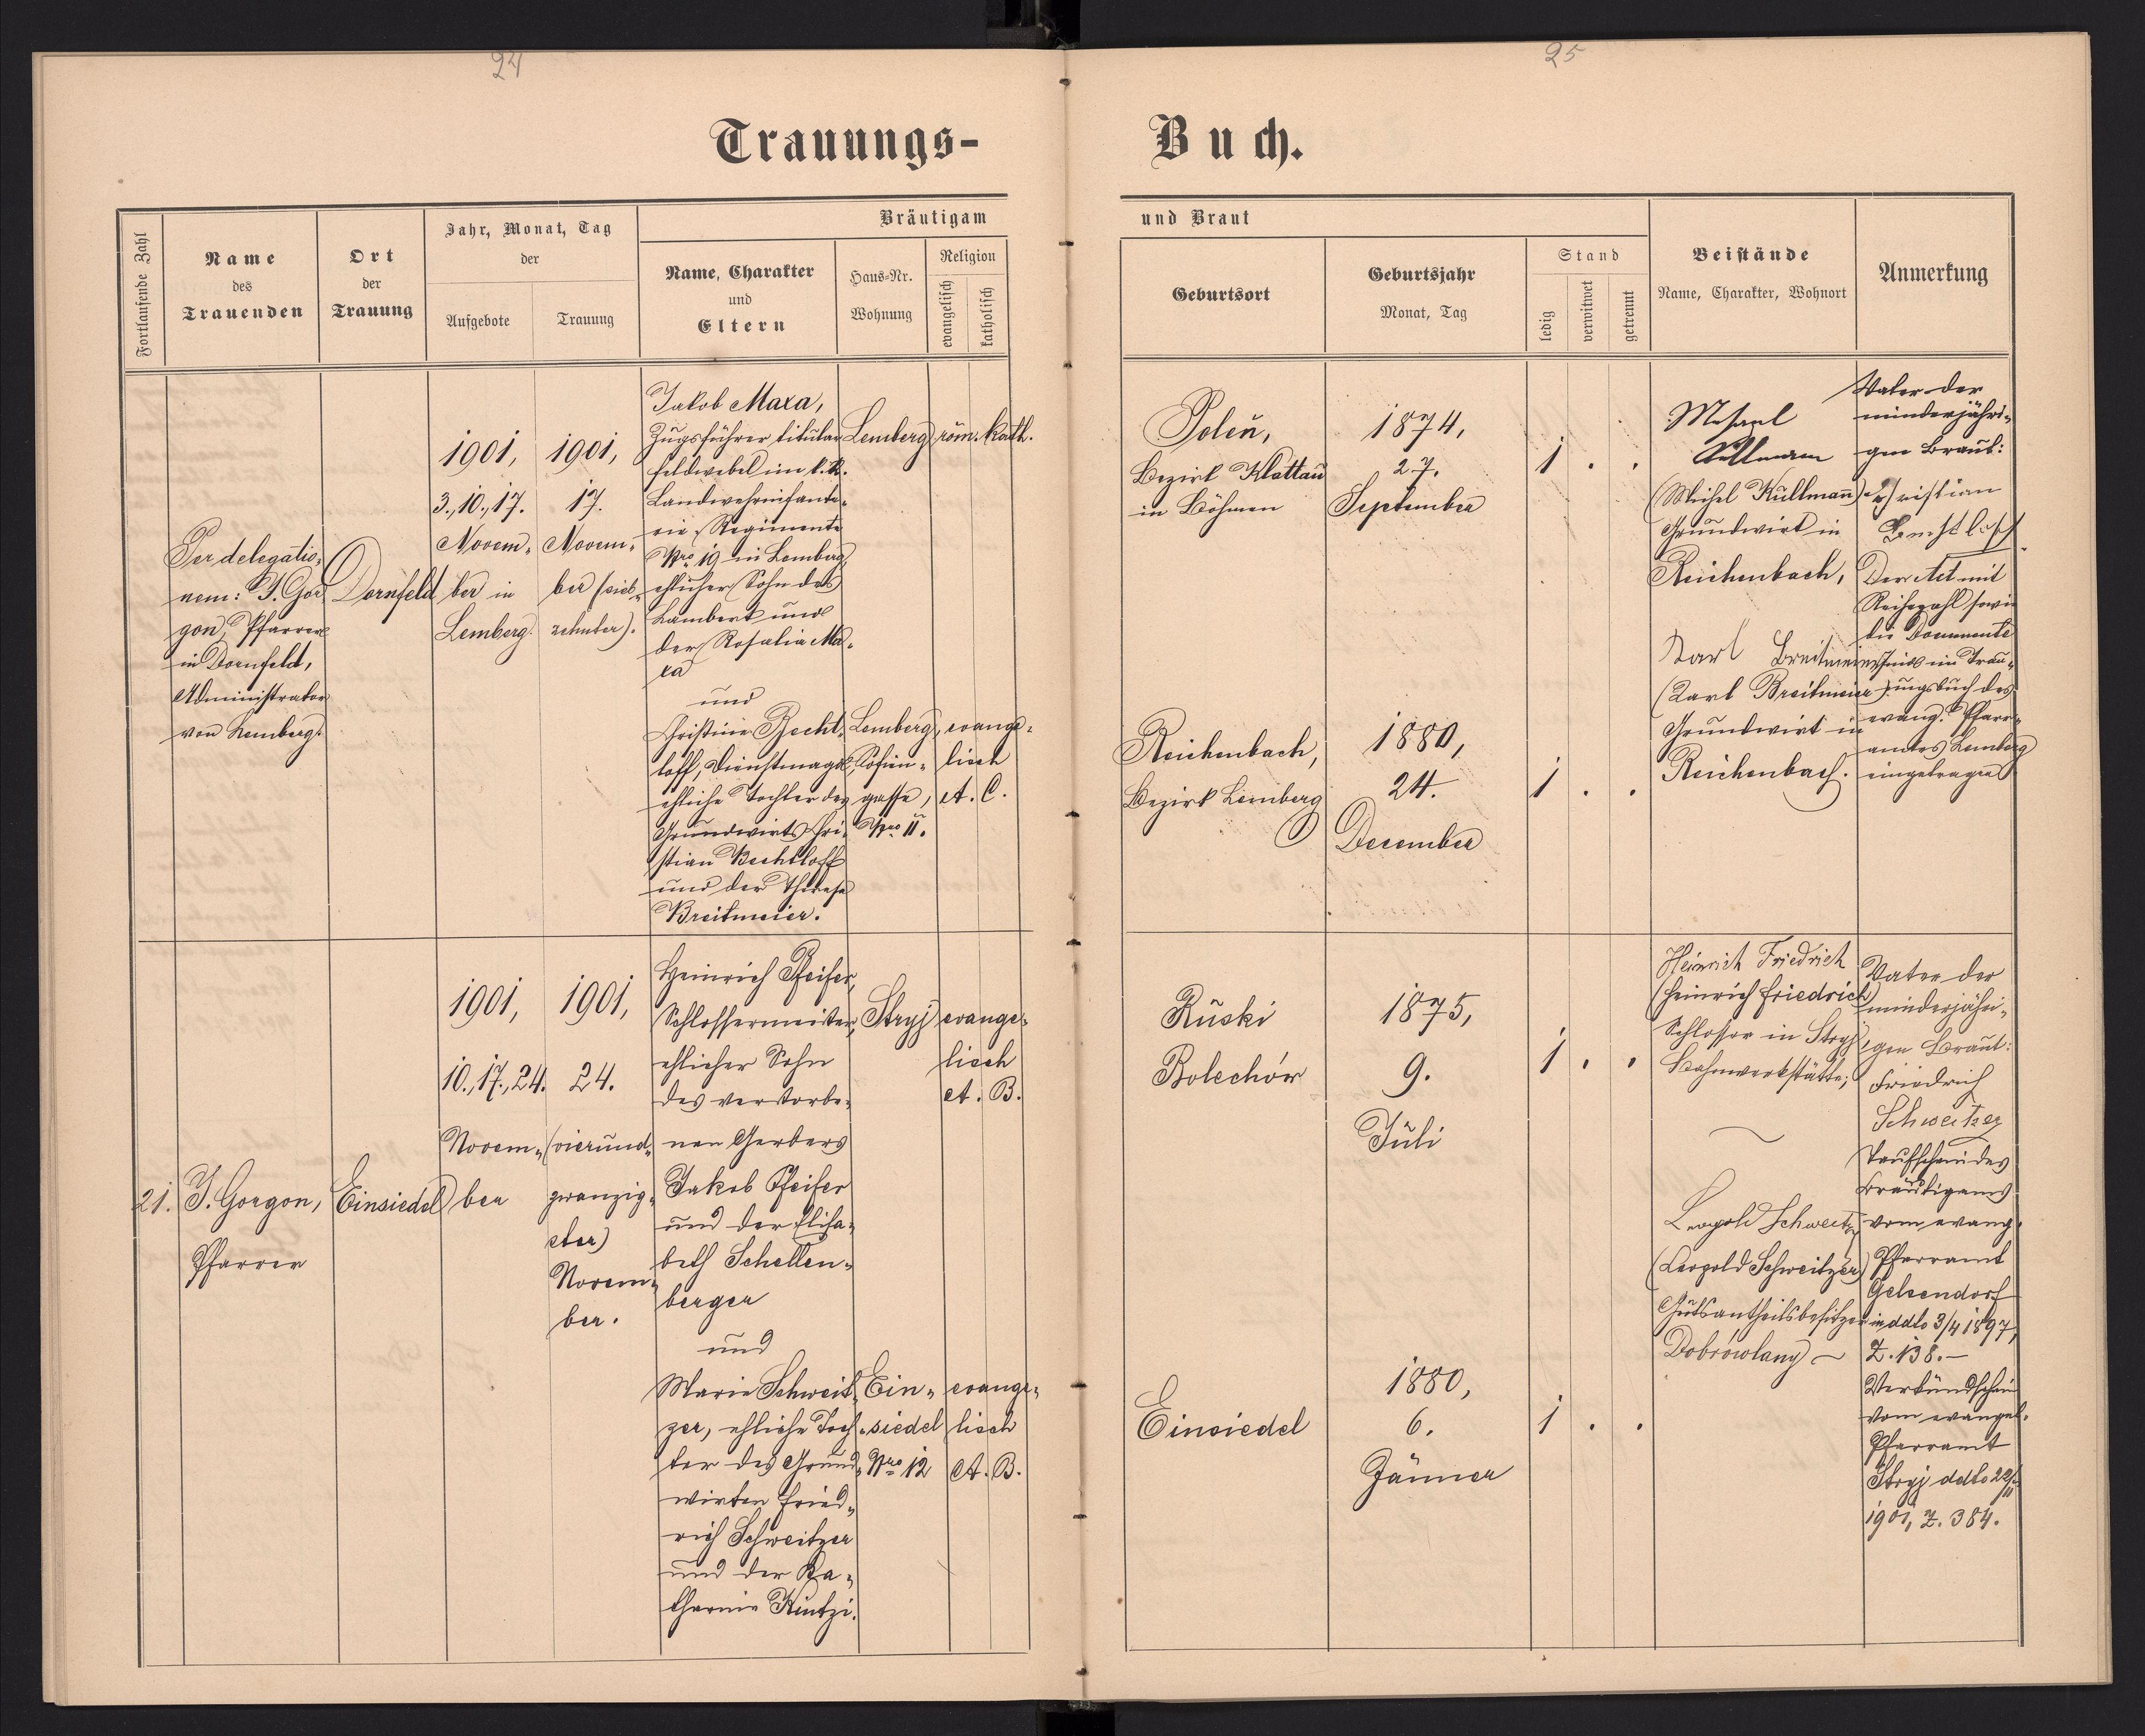 24
25
Trauungs-
Buch.
Fortlaufende Zahl
Name
des
Trauenden
Ort
der
Trauung
Jahr, Monat, Tag
der
Aufgebote
Trauung
Bräutigam
Name, Charakter
und
Eltern
Haus-Nr.
Wohnung
Religion
evangelisch
katholisch
und Braut
Geburtsort
Geburtsjahr
Monat, Tag
Stand
ledig
verwitwet
getrennt
Beistände
Name, Charakter, Wohnort
Anmerkung
Per delegatio„
nem: J. Gor„
gon, Pfarrer
in Dornfeld,
Administrator
von Lemberg.
Dornfeld
1901,
3., 10., 17.
Novem„
ber in
Lemberg.
1901,
17.
Novem„
ber (sieb„
zehnter).
Jakob Maxa,
Zugsführer titular
Feldwebel im k. k.
Landwehrinfante„
rie Regimente
Nro 19 in Lemberg,
ehlicher Sohn des
Lambert und
der Rosalia Ma„
xa
und
Christine Becht„
loff, Dienstmagd,
ehliche Tochter des
Grundwirts Chri„
stian Bechtloff
und der Theresa
Breitmeier.
Lemberg
röm. kath.
Lemberg,
Sofien„
gasse,
Nro 11.
evange„
lisch
A. C.
Polen̄,
Bezirk Klattau
in Böhmen
1874,
27.
September
1 . .
Reichenbach,
Bezirk Lemberg
1880,
24.
December
1 . .
Kullmann
(Michel Kullmann)
Grundwirt in
Reichenbach,
Karl Breitmeier
(Karl Breitmeier)
Grundwirt in
Reichenbach.
Vater der
minderjähri„
gen Braut:
Christian
Bechtloff
Der Act mit
Reihezahl sowie
die Documente
sind im Trau„
ungsbuch des
evang. Pfarr„
amtes Lemberg
eingetragen
21.
J. Gorgon,
Pfarrer
Einsiedel
1901,
10., 17., 24.
Novem„
ber
1901,
24.
(vierund„
zwanzig„
ster)
Novem„
ber.
Heinrich Pfeifer,
Schlossermeister,
ehlicher Sohn
des verstorbe„
nen Gerbers
Jakob Pfeifer
und der Elisa„
beth Schellen„
berger
und
Marie Schweit„
zer, ehliche Toch„
ter des Grund„
wirten Fried„
rich Schweitzer
und der Ka„
tharina Kintzi.
Stryj
evange„
lisch
A. B.
Ein„
siedel
Nro 12
evange„
lisch
A. B.
Ruski
Bolechów
1875,
9.
Juli
1 . .
Einsiedel
1880,
6.
Jänner
1 . .
Heinrich Friedrich
(Heinrich Friedrich)
Schlosser in Stryj,
Bahnwerkstätte;
Leopold Schweitzer
(Leopold Schweitzer)
Gutsantheilsbesitzer in
Dobrowlany —
Vater der
minderjähri„
gen Braut:
Friedrich
Schweitzer
Taufschein des
Bräutigams
vom evang.
Pfarramt
Gelsendorf
ddto 3/4 1897,
Z. 138. —
Verkündschein
vom evangel.
Pfarramt
Stryj ddto 22/11
1901, Z. 384.